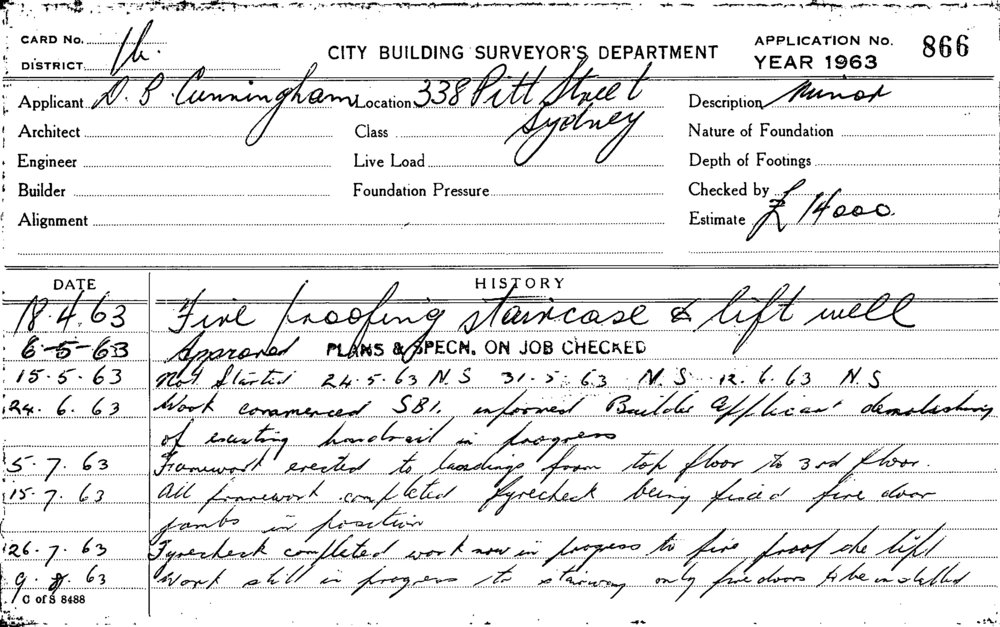 CARD No. 1b.
CITY BUILDING SURVEYOR'S DEPARTMENT
APPLICATION No. 866
DISTRICT
YEAR 1963
Applicant D. B. Cunningham Location 338 Pitt Street
Sydney
Description Minor
Architect
Class
Nature of Foundation
Engineer
Live Load
Depth of Footings
Builder
Foundation Pressure
Checked by
Alignment
Estimate £ 14000.
DATE
HISTORY
18.4.63 Fire proofing staircase & lift well
6-5-63 Approved PLANS & SPECN. ON JOB CHECKED
15.5.63 Not Started 24.5.63 N.S 31.5.63 N.S. 12.6.63 N.S
24.6.63 Work commenced SB1. informed Builder applicant demolishing
of existing handrail in progress
5.7.63 Framework erected to landings from top floor to 3rd floor.
15.7.63 All framework completed fyrecheck being fixed fire door
jambs in position
26.7.63 Fyrecheck completed work now in progress to fire proof the lift
9.8.63 Work still in progress to stairway only fire doors to be installed
C of S 8488